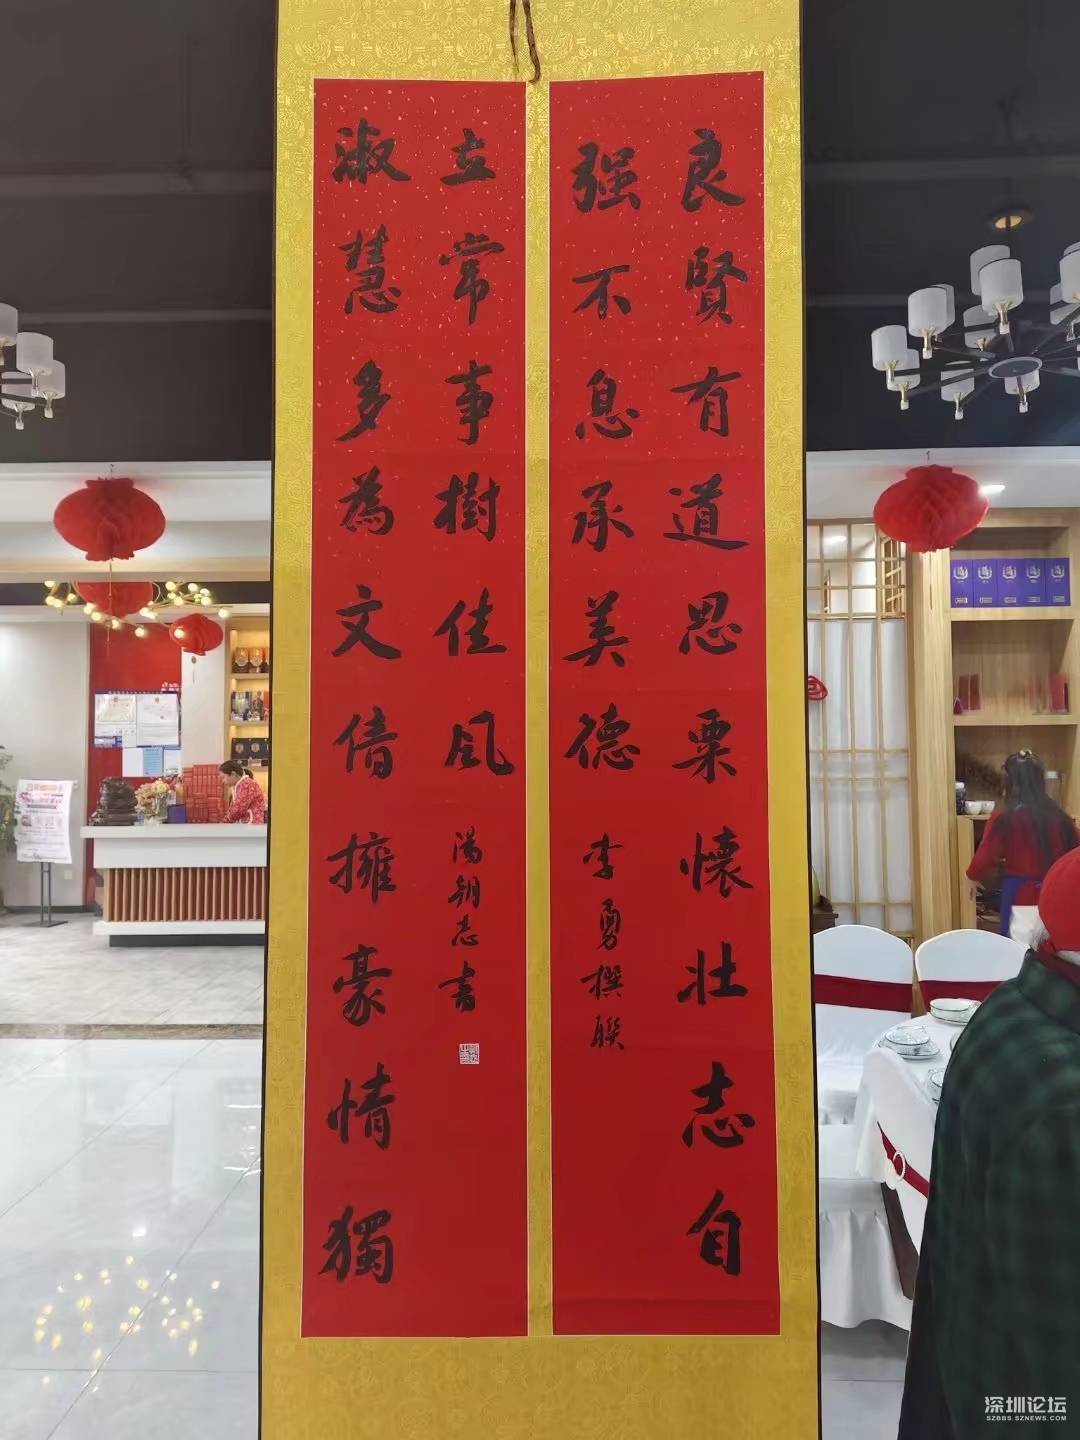 良賢有道思粟懷壮志自
强不息承美德
李勇撰联
淑慧多為文倩擁豪情獨
立常事樹佳风
湯朝志書
深圳论坛
SZBBS.SZNEWS.COM